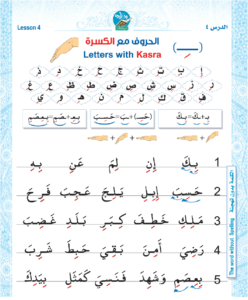 Lesson 4
الدرس ٤
الحروف مع الكسرة
Letters with Kasra
إِ بِ تِ ثِ جِ حِ خِ دِ ذِ
رِ زِ سِ شِ صِ ضِ طِ ظِ عِ غِ
فِ قِ كِ لِ مِ نِ هِ وِ يِ
بِ+كَ=بِكَ
1 بِكَ إِنِ لِمَ عَنِ بِهِ
2 حَسِبَ إِبِلِ يَلِجَ عَجِبَ فَرِحَ
3 مَلِكِ خَطِفَ كِبَرِ بَلَدِ غَضِبَ
4 رَضِيَ أَمِنَ بَقِيَ حَبِطَ شَرِبَ
5 بِعِصَمِ وَشَهِدَ فَنَسِيَ كَمَثَلِ بِيَدِكَ
The word without Spelling